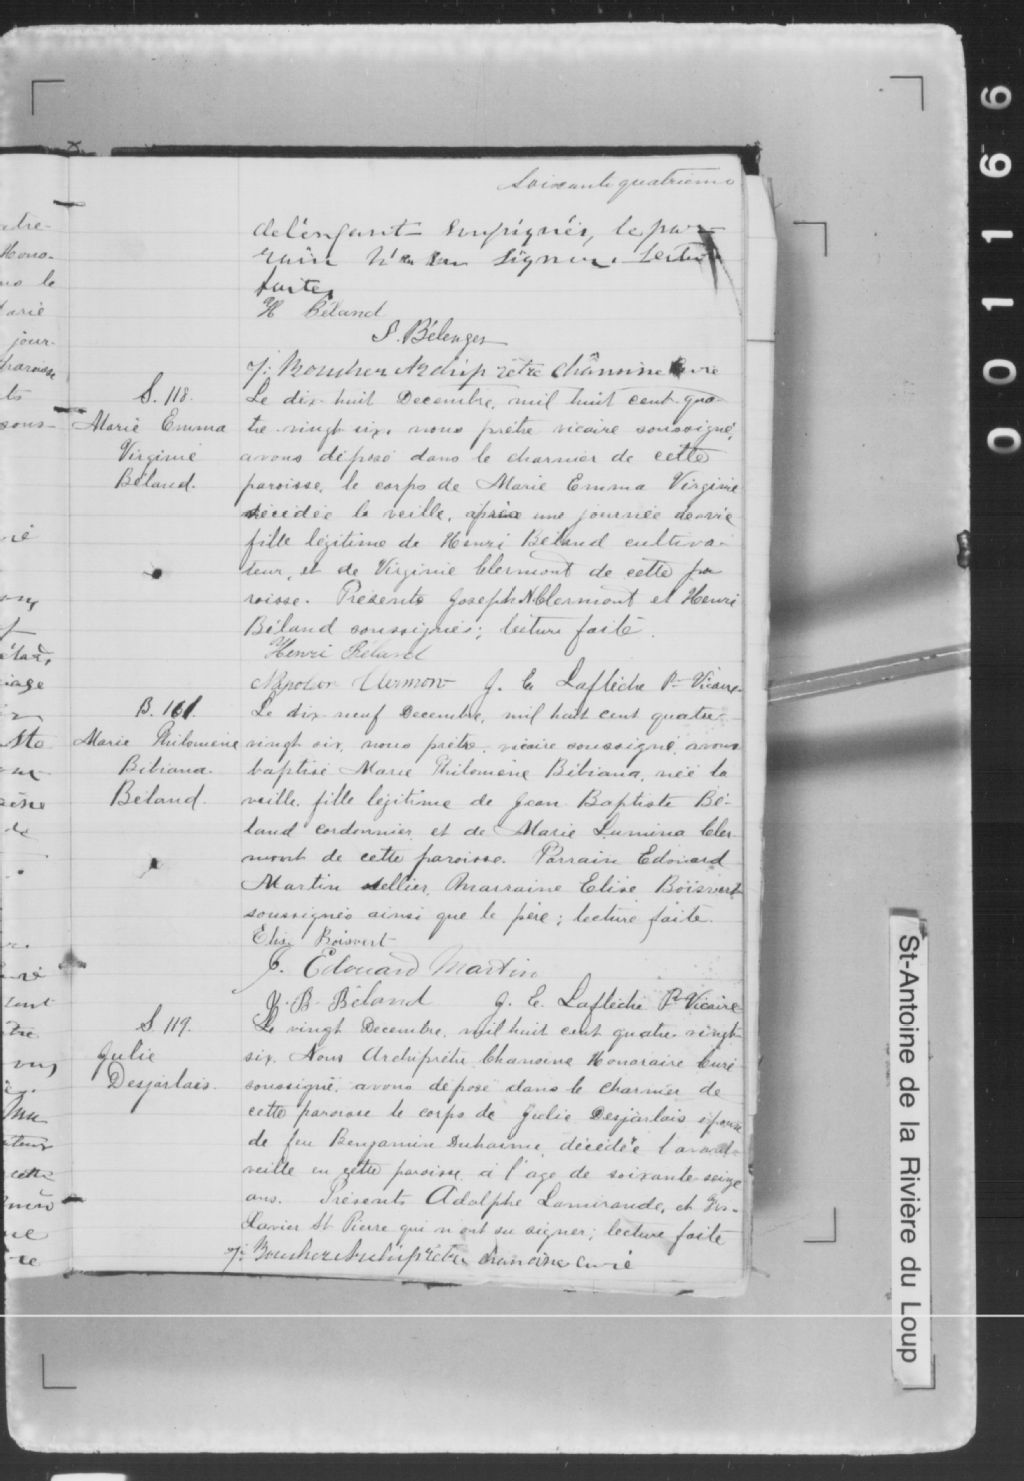 Soixante quatrième
de l'enfant soussignés, le par-
rain n'a su signer. Lecture
faite.
H Béland
S. Bélenger
J. Boucher Archiprêtre Chanoine Curé
S. 118.
Marie Emma
Virginie
Béland.
Le dix huit Decembre, mil huit cent qua-
tre-vingt six, nous prêtre vicaire soussigné,
avons déposé dans le charnier de cette
paroisse, le corps de Marie Emma Virginie
décédée la veille, après une journée de vie
fille légitime de Henri Béland cultiva-
teur, et de Virginie Clermont de cette pa
roisse. Présents Joseph N Clermont et Henri
Béland soussignés; lecture faite.
Henri Béland
Clermont J. E. Laflèche Ptre Vicaire
B. 161.
Marie Philomène
Bibiana
Béland.
Le dix neuf Decembre, mil huit cent quatre-
vingt six, nous prêtre, vicaire soussigné avons
baptisé Marie Philomène Bibiana, née la
veille, fille légitime de Jean Baptiste Bé-
land cordonnier et de Marie Lumina Cler
mont de cette paroisse. Parrain Edouard
Martin sellier, Marraine Elise Boisvert
soussignés ainsi que le père; lecture faite.
Elise Boisvert
J. Edouard Martin
J. B. Béland J. E. Laflèche Ptre Vicaire
S. 119.
Julie
Desjarlais.
Le vingt Decembre, mil huit cent quatre vingt
six, Nous Archiprêtre Chanoine Honoraire Curé
soussigné, avons déposé dans le charnier de
cette paroisse le corps de Julie Desjarlais épouse
de feu Benjamin Duhaime, décédée l'avant-
veille en cette paroisse, à l'age de soixante-seize
ans. Présents Adolphe Lamirande, et Frs-
Xavier St Pierre qui n'ont su signer; lecture faite
J. Boucher Archiprêtre chanoine curé
St-Antoine de la Rivière du Loup
0 0 1 1 6 6